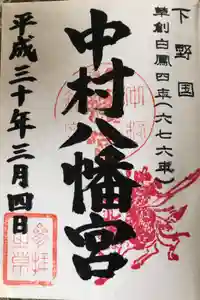 下野国
草創白鳳四年(六七六年)
中村八幡宮
平成三十年三月四日